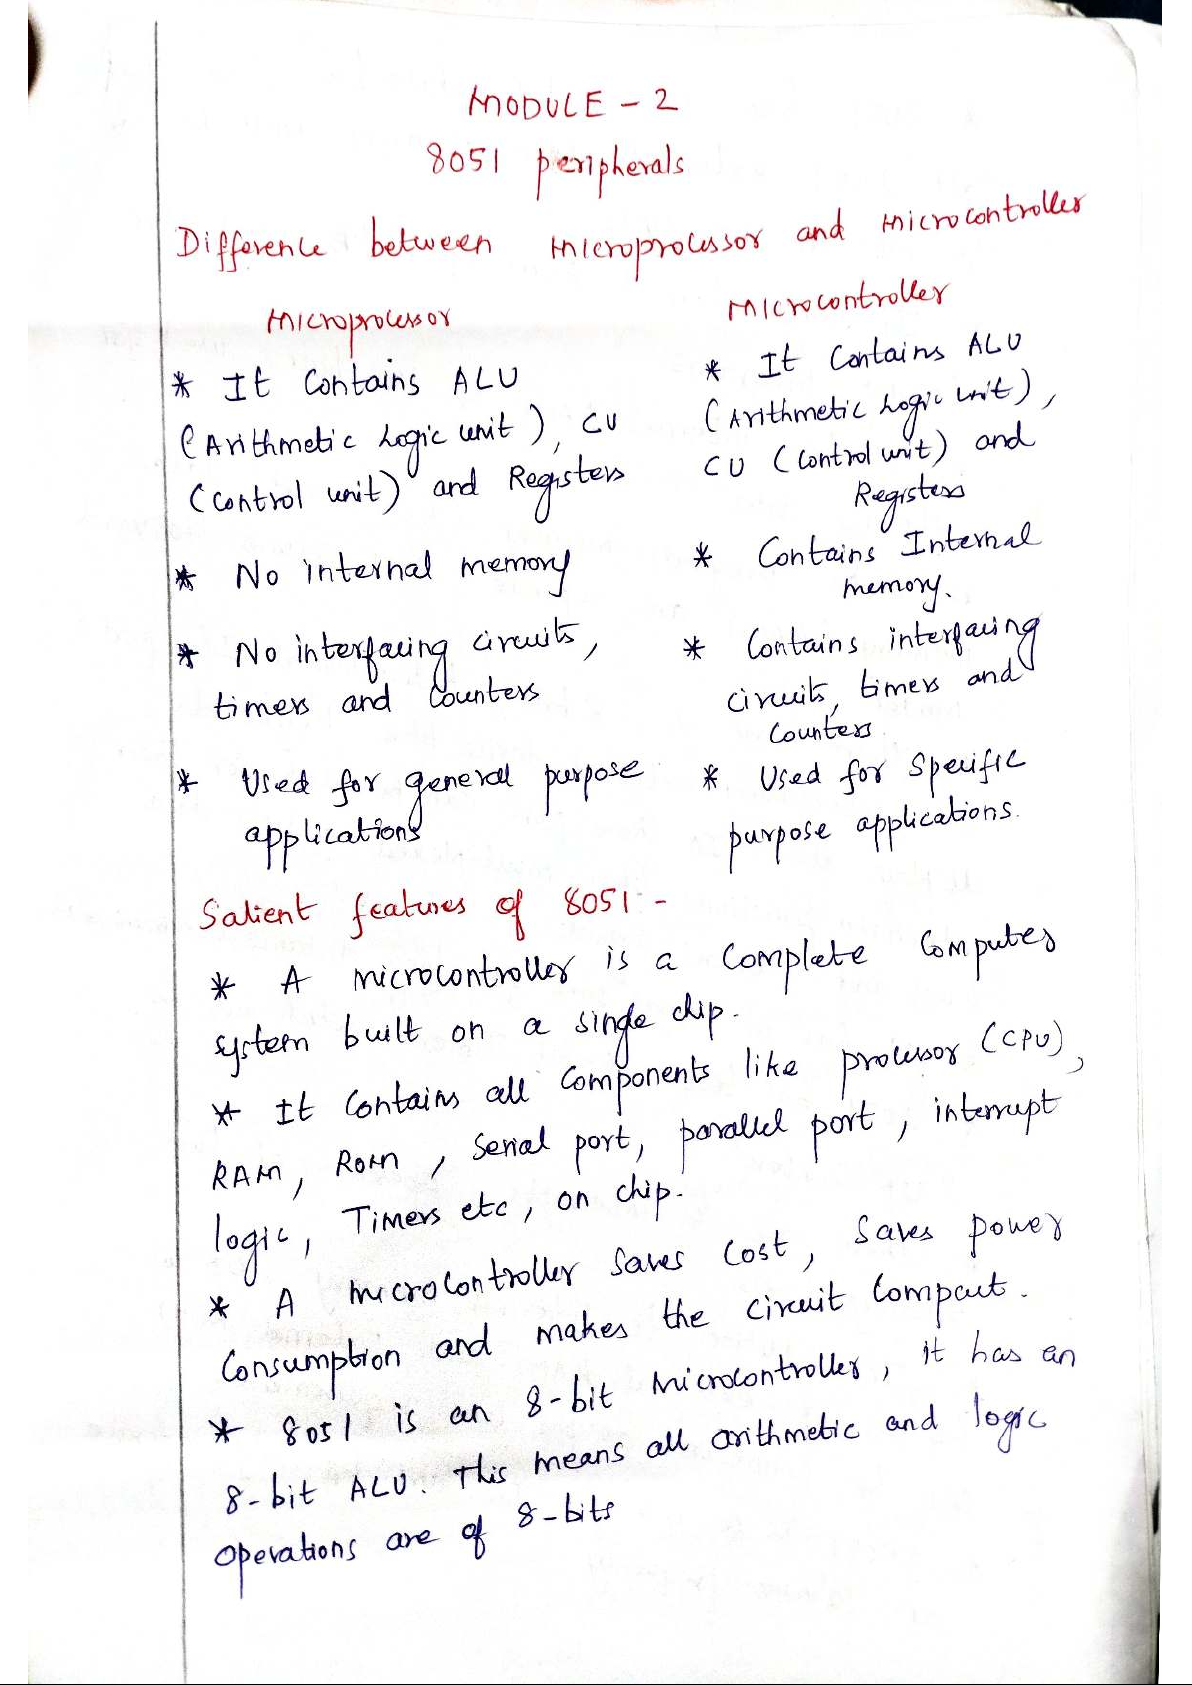 MODULE - 2
8051 peripherals
Difference between microprocessor and microcontroller
Microprocessor
* It Contains ALU
(Arithmetic Logic unit), CU
(control unit) and Registers
* No internal memory
* No interfacing circuits,
timers and Counters
* Used for general purpose
applications
Microcontroller
* It Contains ALU
(Arithmetic Logic unit),
CU (Control unit) and
Registers
* Contains Internal
memory.
* Contains interfacing
circuits, timers and
Counters
* Used for Specific
purpose applications.
Salient features of 8051 :-
* A microcontroller is a Complete Computer
system built on a single chip.
* It Contains all Components like processor (CPU),
RAM, ROM, Serial port, parallel port, interrupt
logic, Timers etc, on chip.
* A microcontroller Saves Cost, Saves power
Consumption and makes the circuit Compact.
* 8051 is an 8-bit Microcontroller, it has an
8-bit ALU. This means all arithmetic and logic
operations are of 8-bits